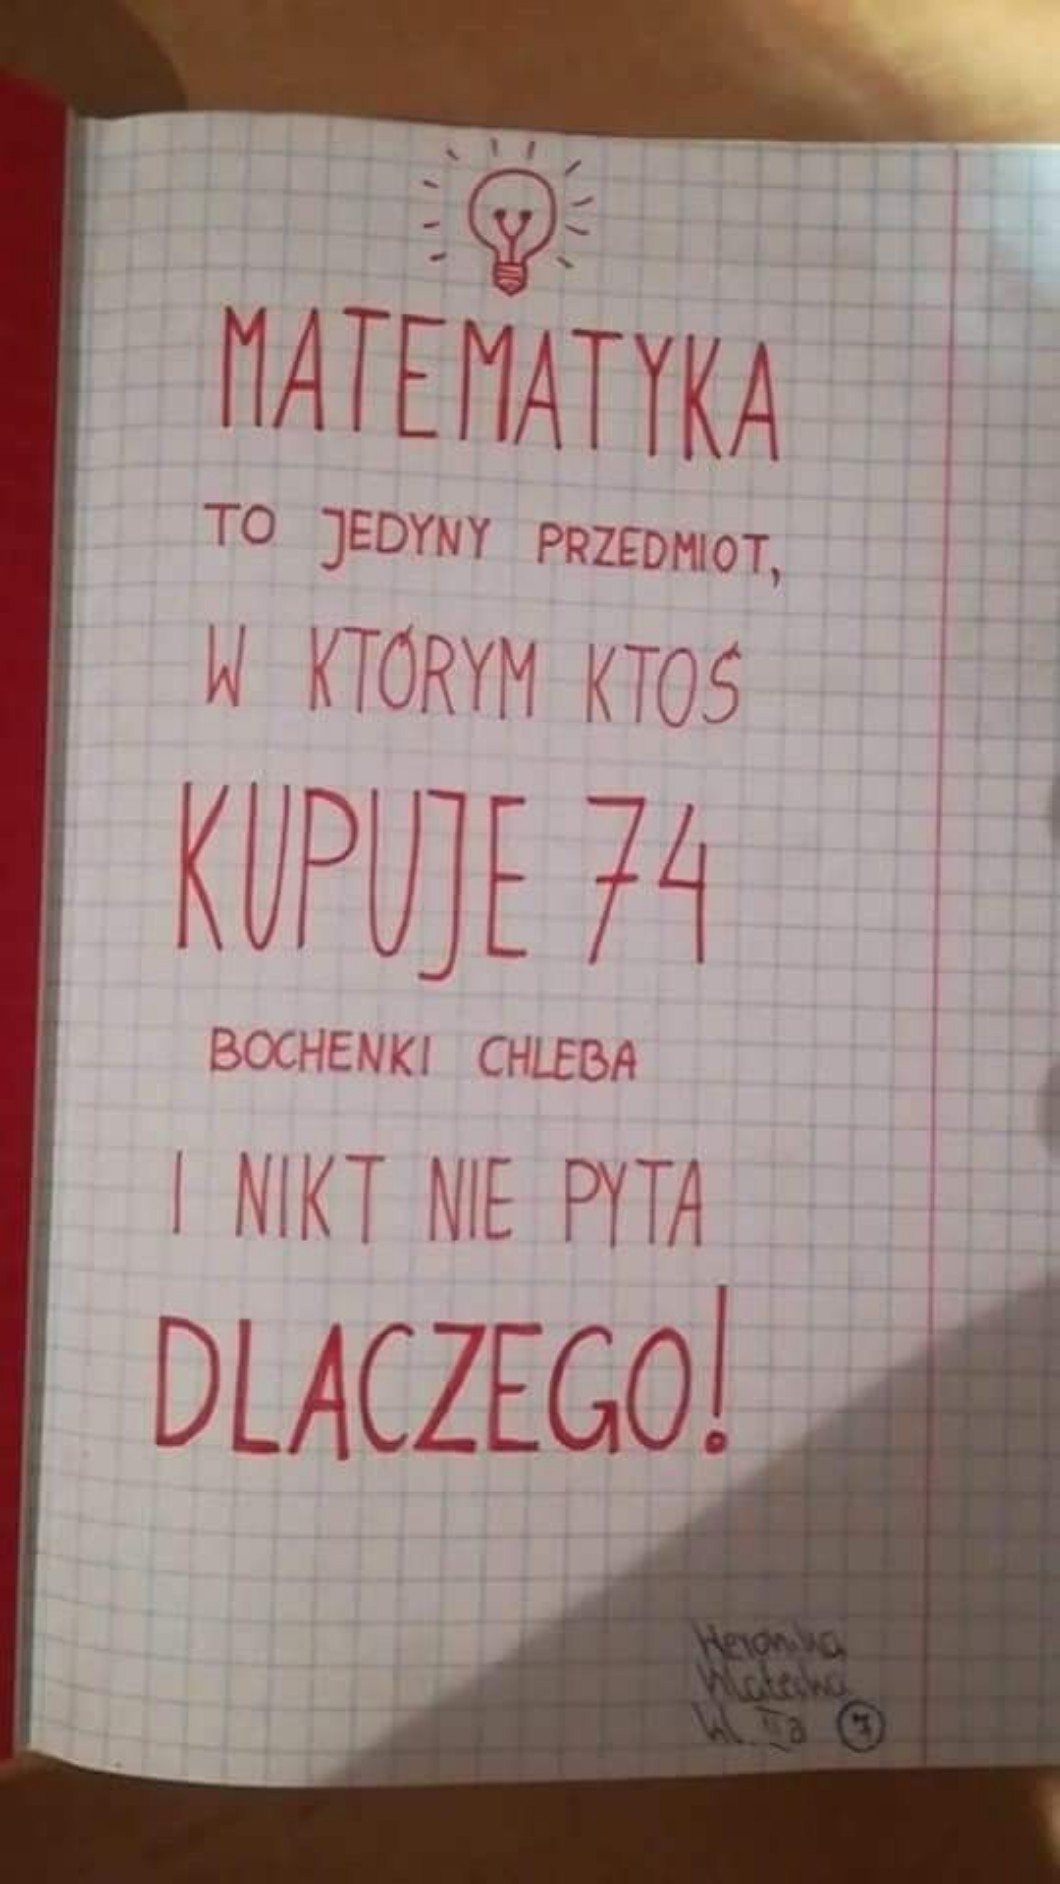 MATEMATYKA
TO JEDYNY PRZEDMIOT,
W KTÓRYM KTOŚ
KUPUJE 74
BOCHENKI CHLEBA
I NIKT NIE PYTA
DLACZEGO!
Weronika
kl. IIa 7